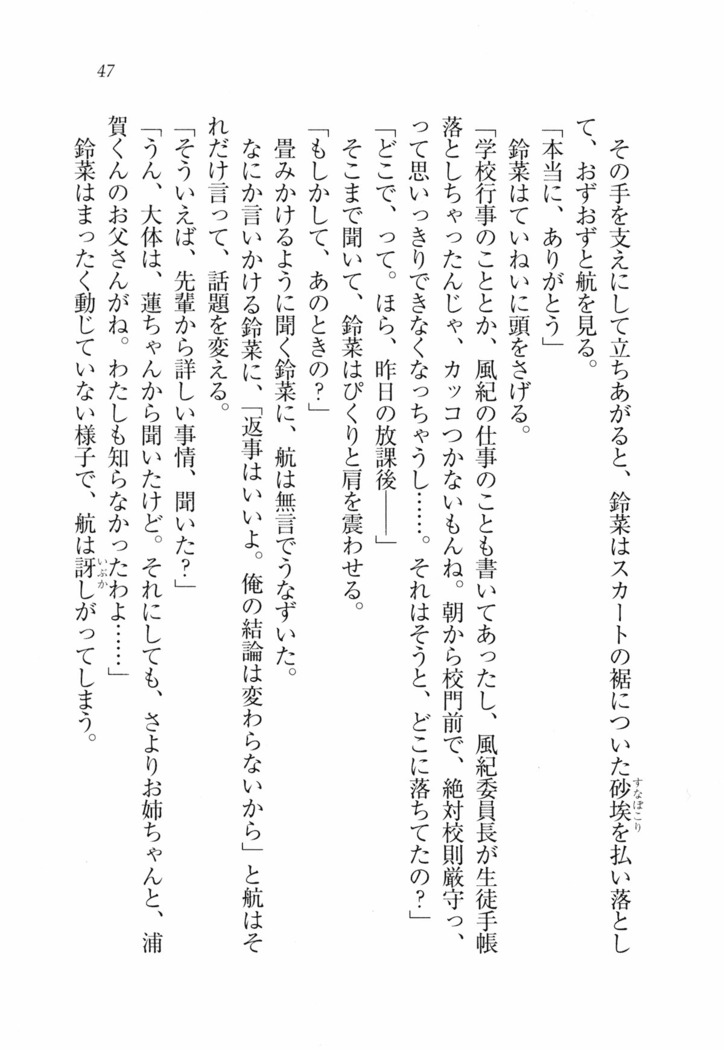 47
その手を支えにして立ちあがると、鈴菜はスカートの裾についた砂埃を払い落とし
て、おずおずと航を見る。
「本当に、ありがとう」
鈴菜はていねいに頭をさげる。
「学校行事のこととか、風紀の仕事のことも書いてあったし、風紀委員長が生徒手帳
落としちゃったんじゃ、カッコつかないもんね。朝から校門前で、絶対校則厳守っ、
って思いっきりできなくなっちゃうし……。それはそうと、どこに落ちてたの？」
「どこで、って。ほら、昨日の放課後――」
そこまで聞いて、鈴菜はぴくりと肩を震わせる。
「もしかして、あのときの？」
畳みかけるように聞く鈴菜に、航は無言でうなずいた。
なにか言いかける鈴菜に、「返事はいいよ。俺の結論は変わらないから」と航はそ
れだけ言って、話題を変える。
「そういえば、先輩から詳しい事情、聞いた？」
「うん、大体は、蓮ちゃんから聞いたけど。それにしても、さよりお姉ちゃんと、浦
賀くんのお父さんがね。わたしも知らなかったわよ……」
鈴菜はまったく動じていない様子で、航は訝しがってしまう。
すなぼこり
いぶか